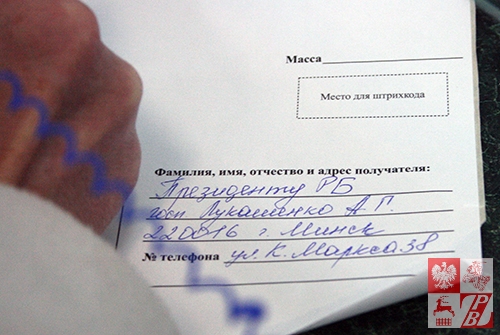 Масса
Место для штрихкода
Фамилия, имя, отчество и адрес получателя:
Президенту РБ
Лукашенко А.Г.
220016 г. Минск
№ телефона ул. К. Маркса 38
РВ